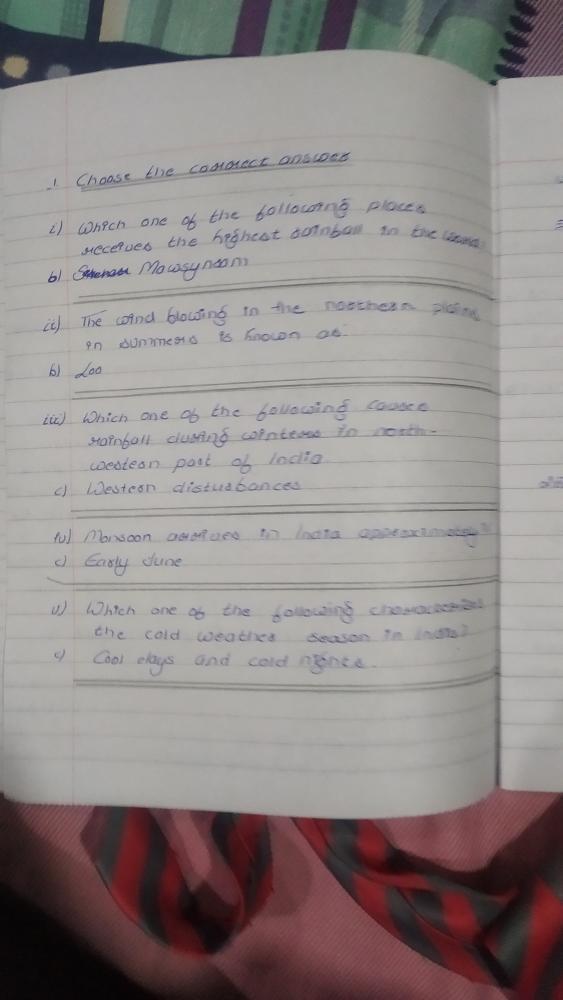 1. Choose the correct answer
i) Which one of the following places
receives the highest rainfall in the world
b) Mawsynram
ii) The wind blowing in the northern plains
in summers is known as:
b) Loo
iii) Which one of the following causes
rainfall during winters in north-
western part of India
c) Western disturbances
iv) Monsoon arrives in India approximately
c) Early June
v) Which one of the following characterises
the cold weather season in India?
c) Cool days and cold nights.